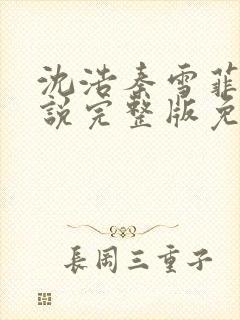 沈浩秦雪菲
說完整版免
長岡三重子